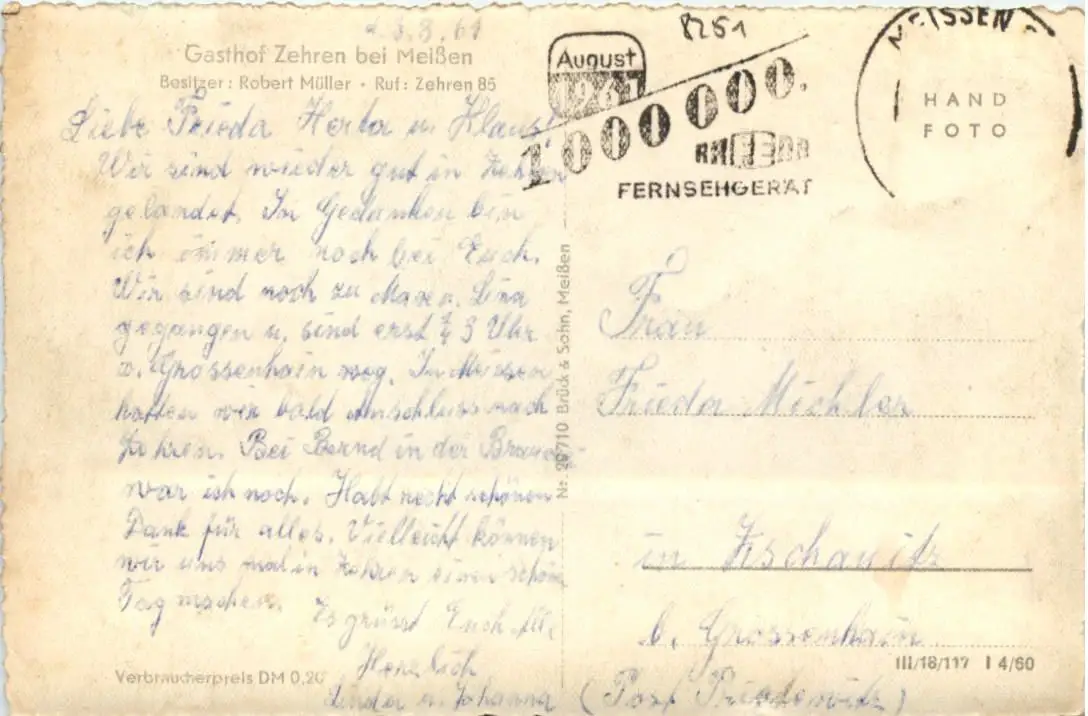 d. 3.8.61
Gasthof Zehren bei Meißen
Besitzer: Robert Müller · Ruf: Zehren 85
Liebe Frieda Herta u. Klaus!
Wir sind wieder gut in Zehren
gelandet. In Gedanken bin
ich immer noch bei Euch.
Wir sind noch zu Max u. Lina
gegangen u. sind erst 3 Uhr
v. Grossenhain weg. In Meissen
hatten wir bald Anschluss nach
Zehren. Bei Bernd in der
war ich noch. Habt recht schönen
Dank für alles. Vielleicht können
wir uns mal in Zehren einen schön
Tag machen.
Es grüsst Euch
Herzlich
u. Johanna
Verbraucherpreis DM 0,20
Nr. 20710 Brück & Sohn, Meißen
8251
August
1961
1000000.
RAFENA
FERNSEHGERÄT
MEISSEN
HAND
FOTO
Frau
Frieda Michler
in Zschauitz
b. Grossenhain
(Post Priestewitz)
III/18/117 I 4/60